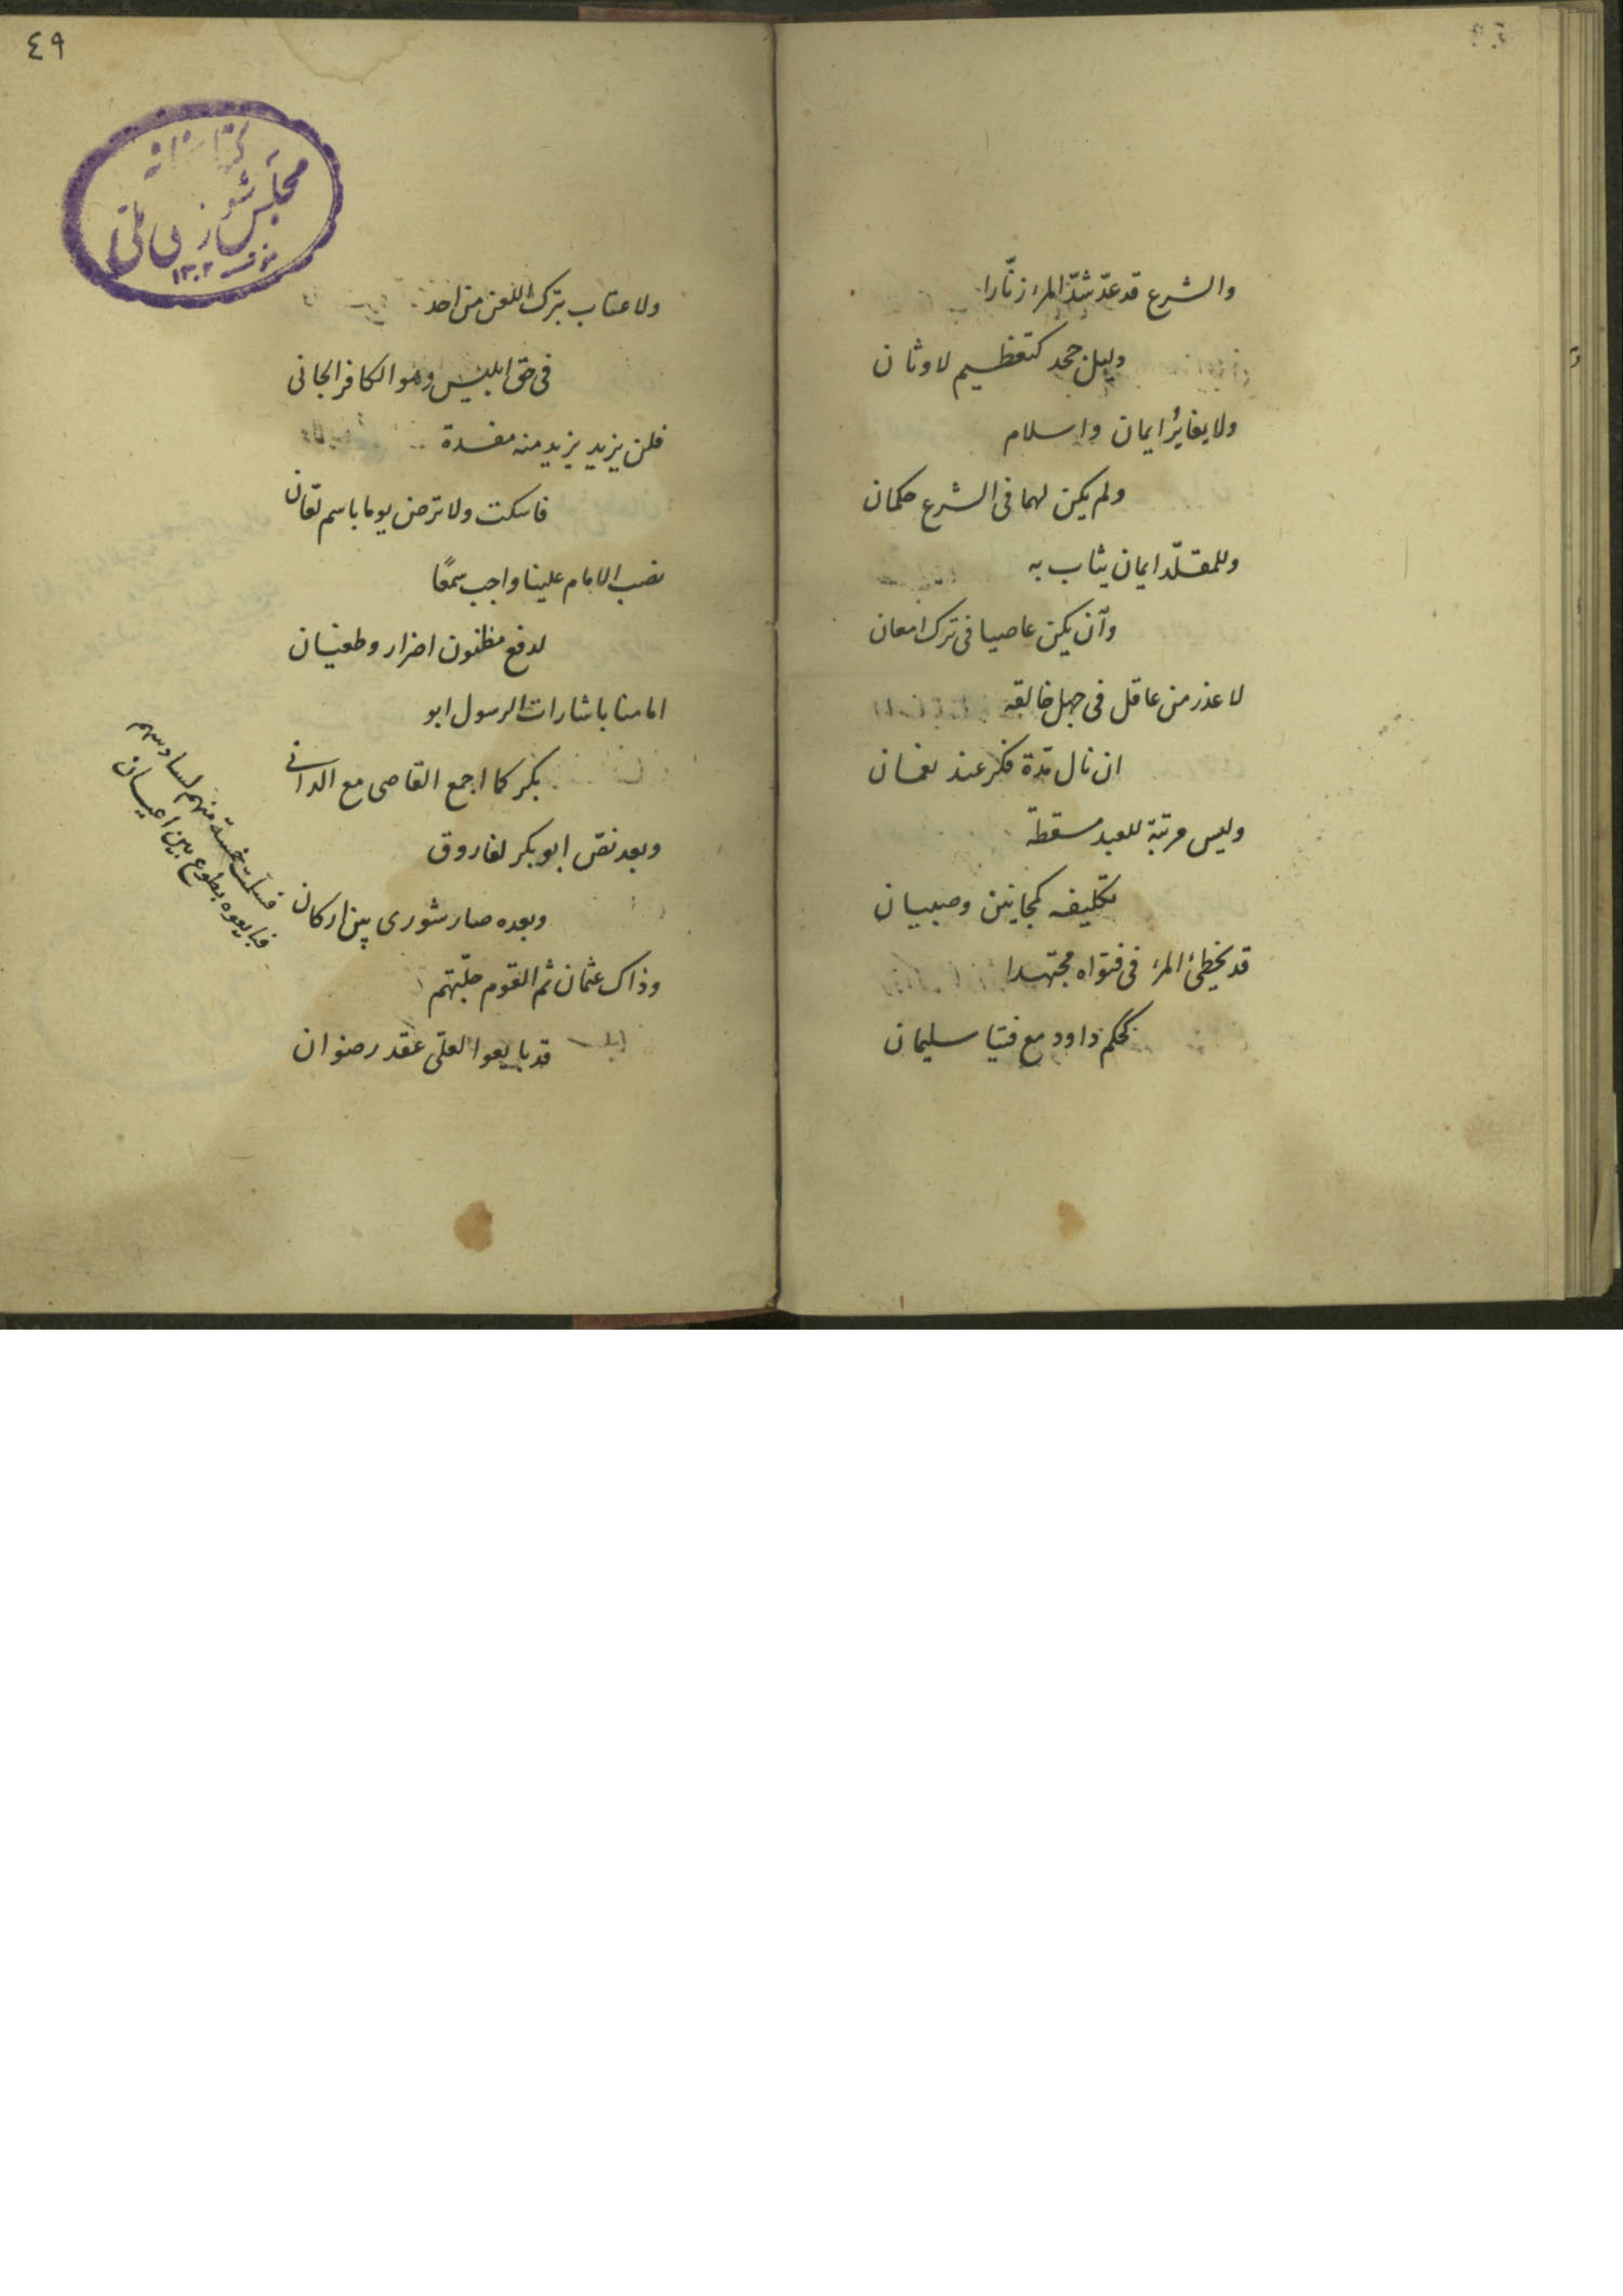 والشرع قد عدّ شدّ المرء زنّارا
دليل جحد كتعظيم لاوثان
ولا يغايرُ ايمان واسلام
ولم يكن لهما فى الشرع حكمان
وللمقلّد ايمان يثاب به
وان يكن عاصيا فى ترك امعان
لا عذر من عاقل فى جهل خالقه
ان نال مدّة فكر عند نعمان
وليس مرتبة للعبد مسقطة
تكليفه كمجانين وصبيان
قد يخطئ المرء فى فتواه مجتهدا
كحكم داود مع فتيا سليمان
٤٩
كتابخانه
مجلس شورای ملی
١٣٠٢
ولا عتاب بترك اللعن من احد
فى حق ابليس وهو الكافر الجانى
فلن يزيد يزيد منه مفسدة
فاسكت ولا ترض يوما باسم لعّان
نصب الامام علينا واجب سمعًا
لدفع مظنون اضرار وطغيان
امامنا باشارات الرسول ابو
بكر كما اجمع القاصى مع الدانى
وبعد نصّ ابو بكر لفاروق
وبعده صار شورى بين اركان
فسلمت خمسة منهم لسادسهم
فبايعوه بطوع بين اعيان
وذاك عثمان ثم القوم جلّتهم
قد بايعوا لعلىّ عقد رضوان